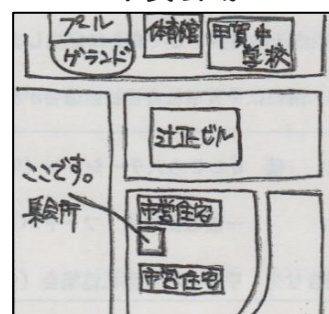 プール
グランド
体育館
甲賀中
学校
辻正ビル
ここです。
集会所
市営住宅
市営住宅